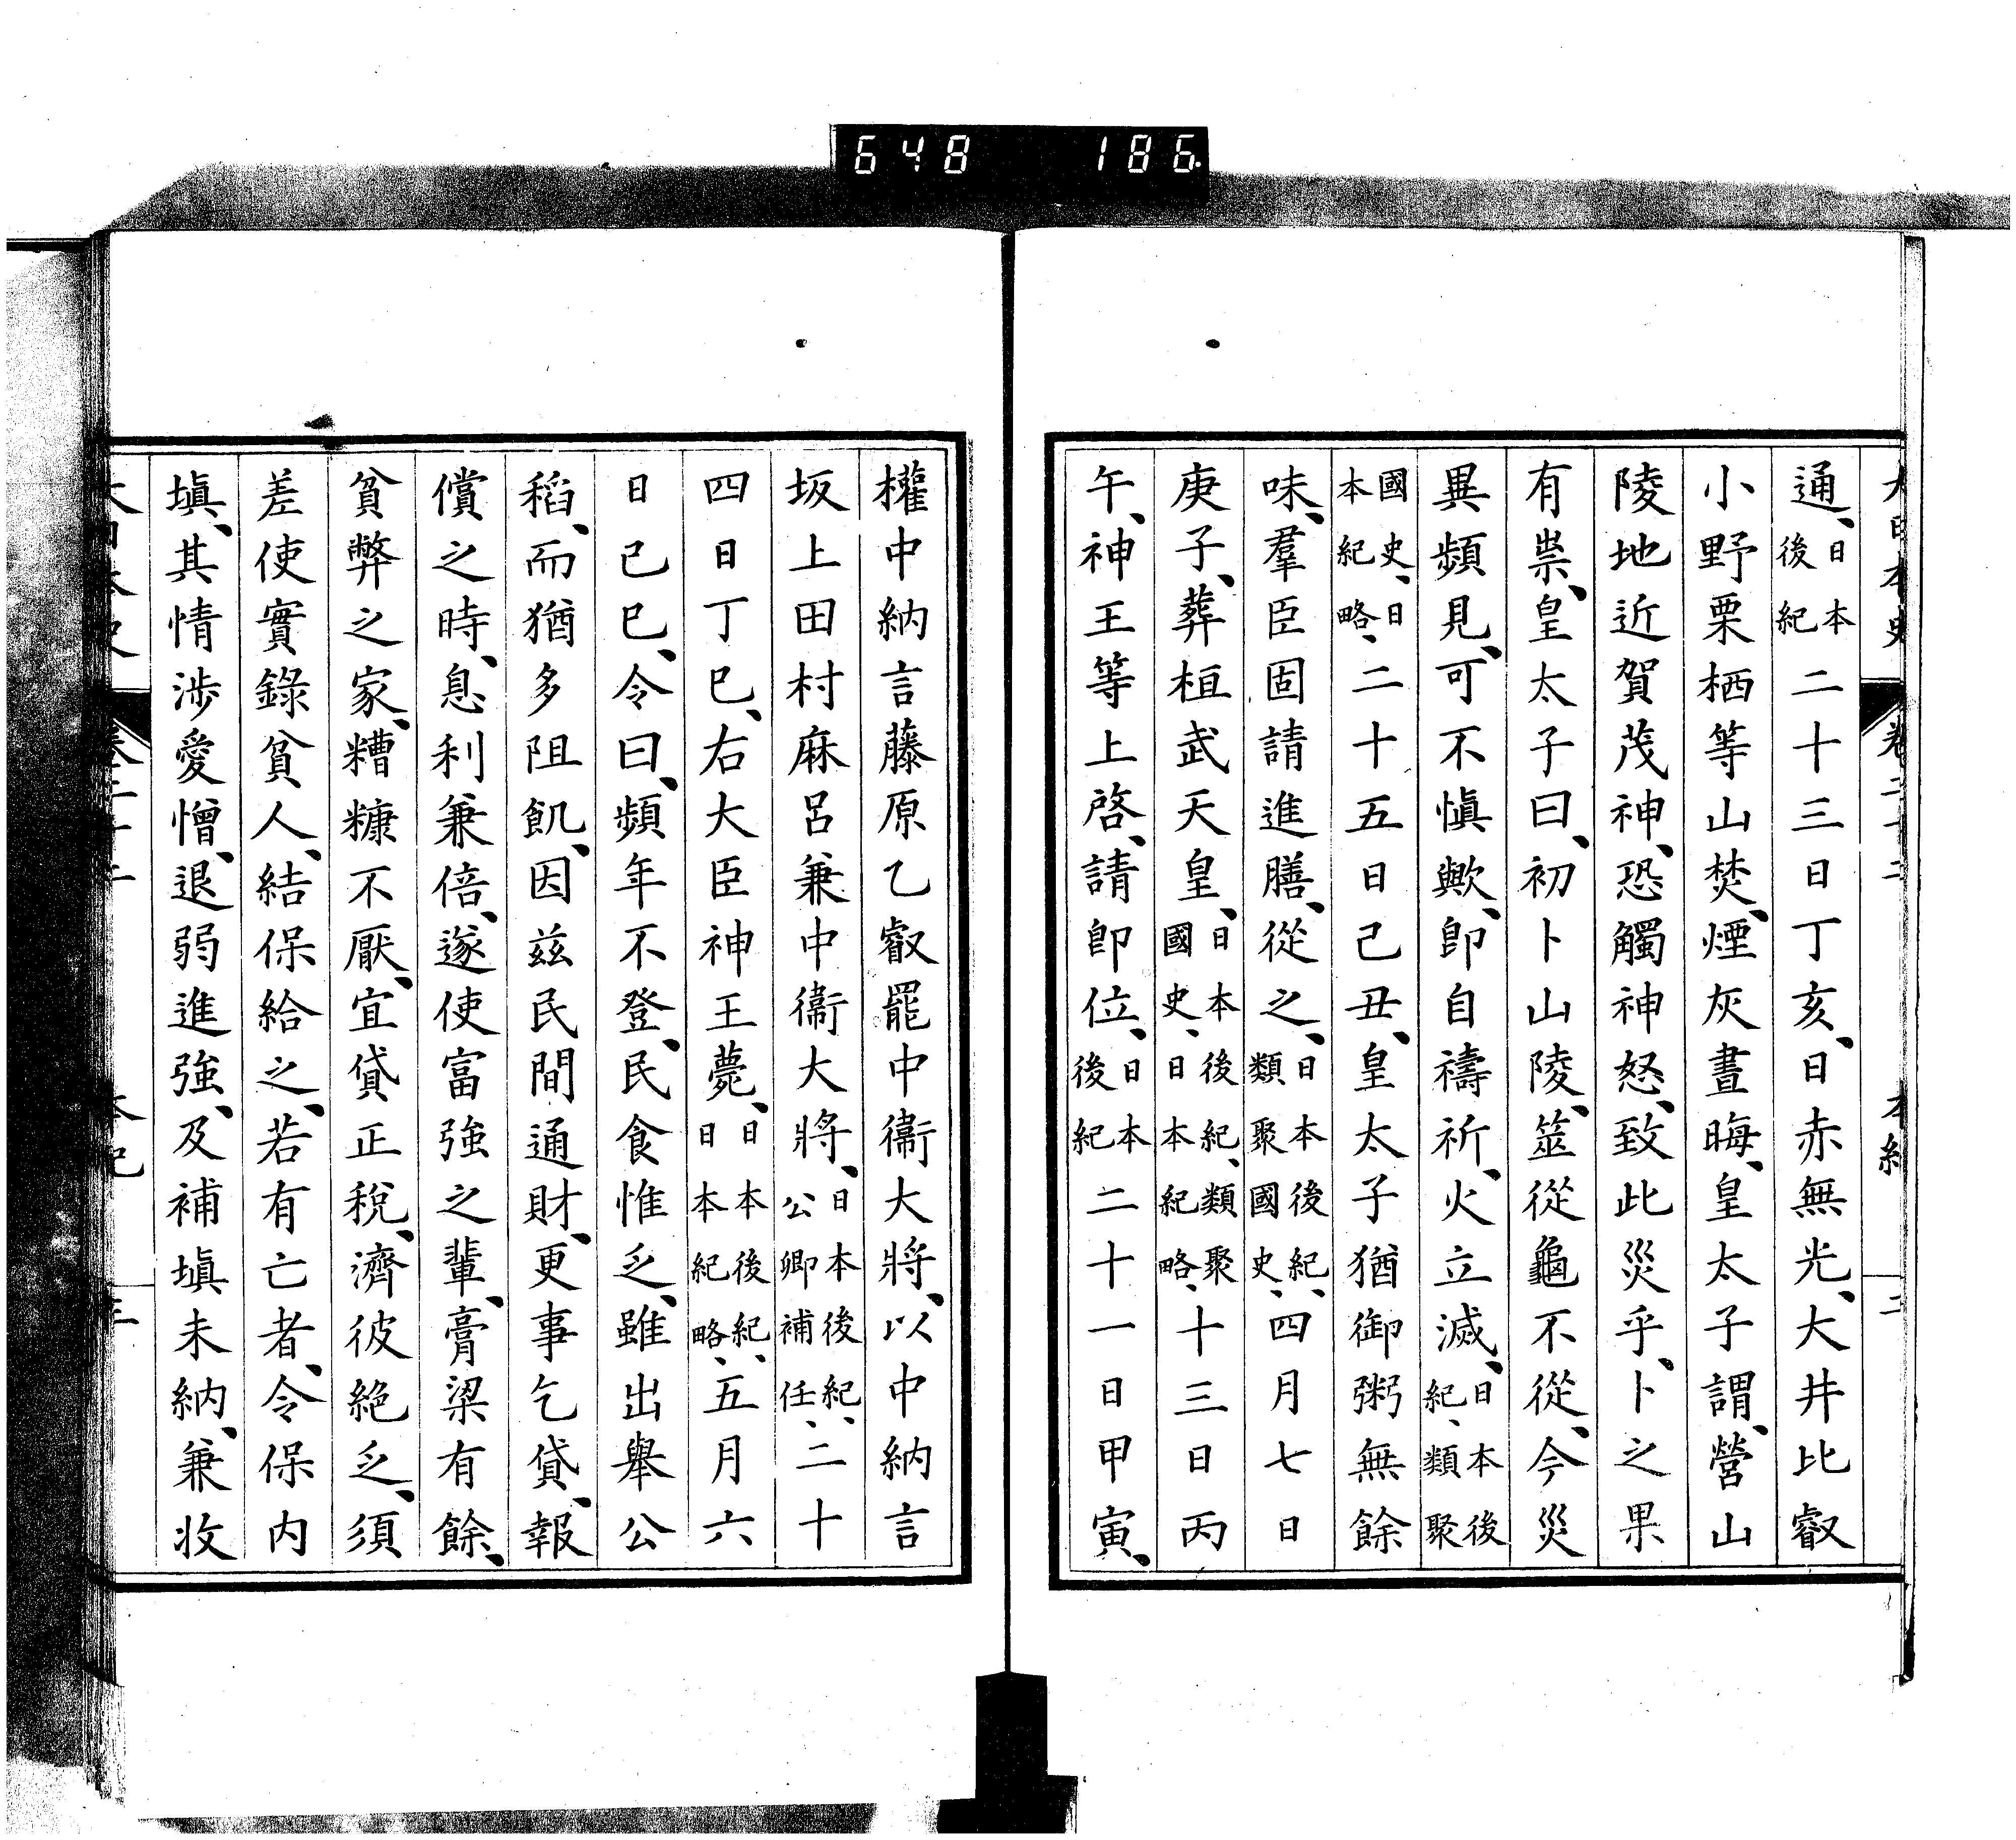 648 186
通、日本後紀二十三日丁亥、日赤無光、大井比叡
小野栗栖等山焚、煙灰晝晦、皇太子謂、營山
陵地近賀茂神、恐觸神怒、致此災乎、卜之果
有祟、皇太子曰、初卜山陵、筮從龜不從、今災
異頻見、可不愼歟、卽自禱祈、火立滅、日本後紀、類聚
國史、日本紀略、二十五日己丑、皇太子猶御粥無餘
味、羣臣固請進膳、從之、日本後紀、類聚國史、四月七日
庚子、葬桓武天皇、日本後紀、類聚國史、日本紀略、十三日丙
午、神王等上啓、請卽位、日本後紀二十一日甲寅、
權中納言藤原乙叡罷中衞大將、以中納言
坂上田村麻呂兼中衞大將、日本後紀、公卿補任、二十
四日丁巳、右大臣神王薨、日本後紀、日本紀略、五月六
日己巳、令曰、頻年不登、民食惟乏、雖出舉公
稻、而猶多阻飢、因茲民間通財、更事乞貸、報
償之時、息利兼倍、遂使富強之輩、膏粱有餘、
貧弊之家、糟糠不厭、宜貸正稅、濟彼絶乏、須
差使實錄貧人、結保給之、若有亡者、令保内
塡、其情涉愛憎、退弱進強、及補塡未納、兼收